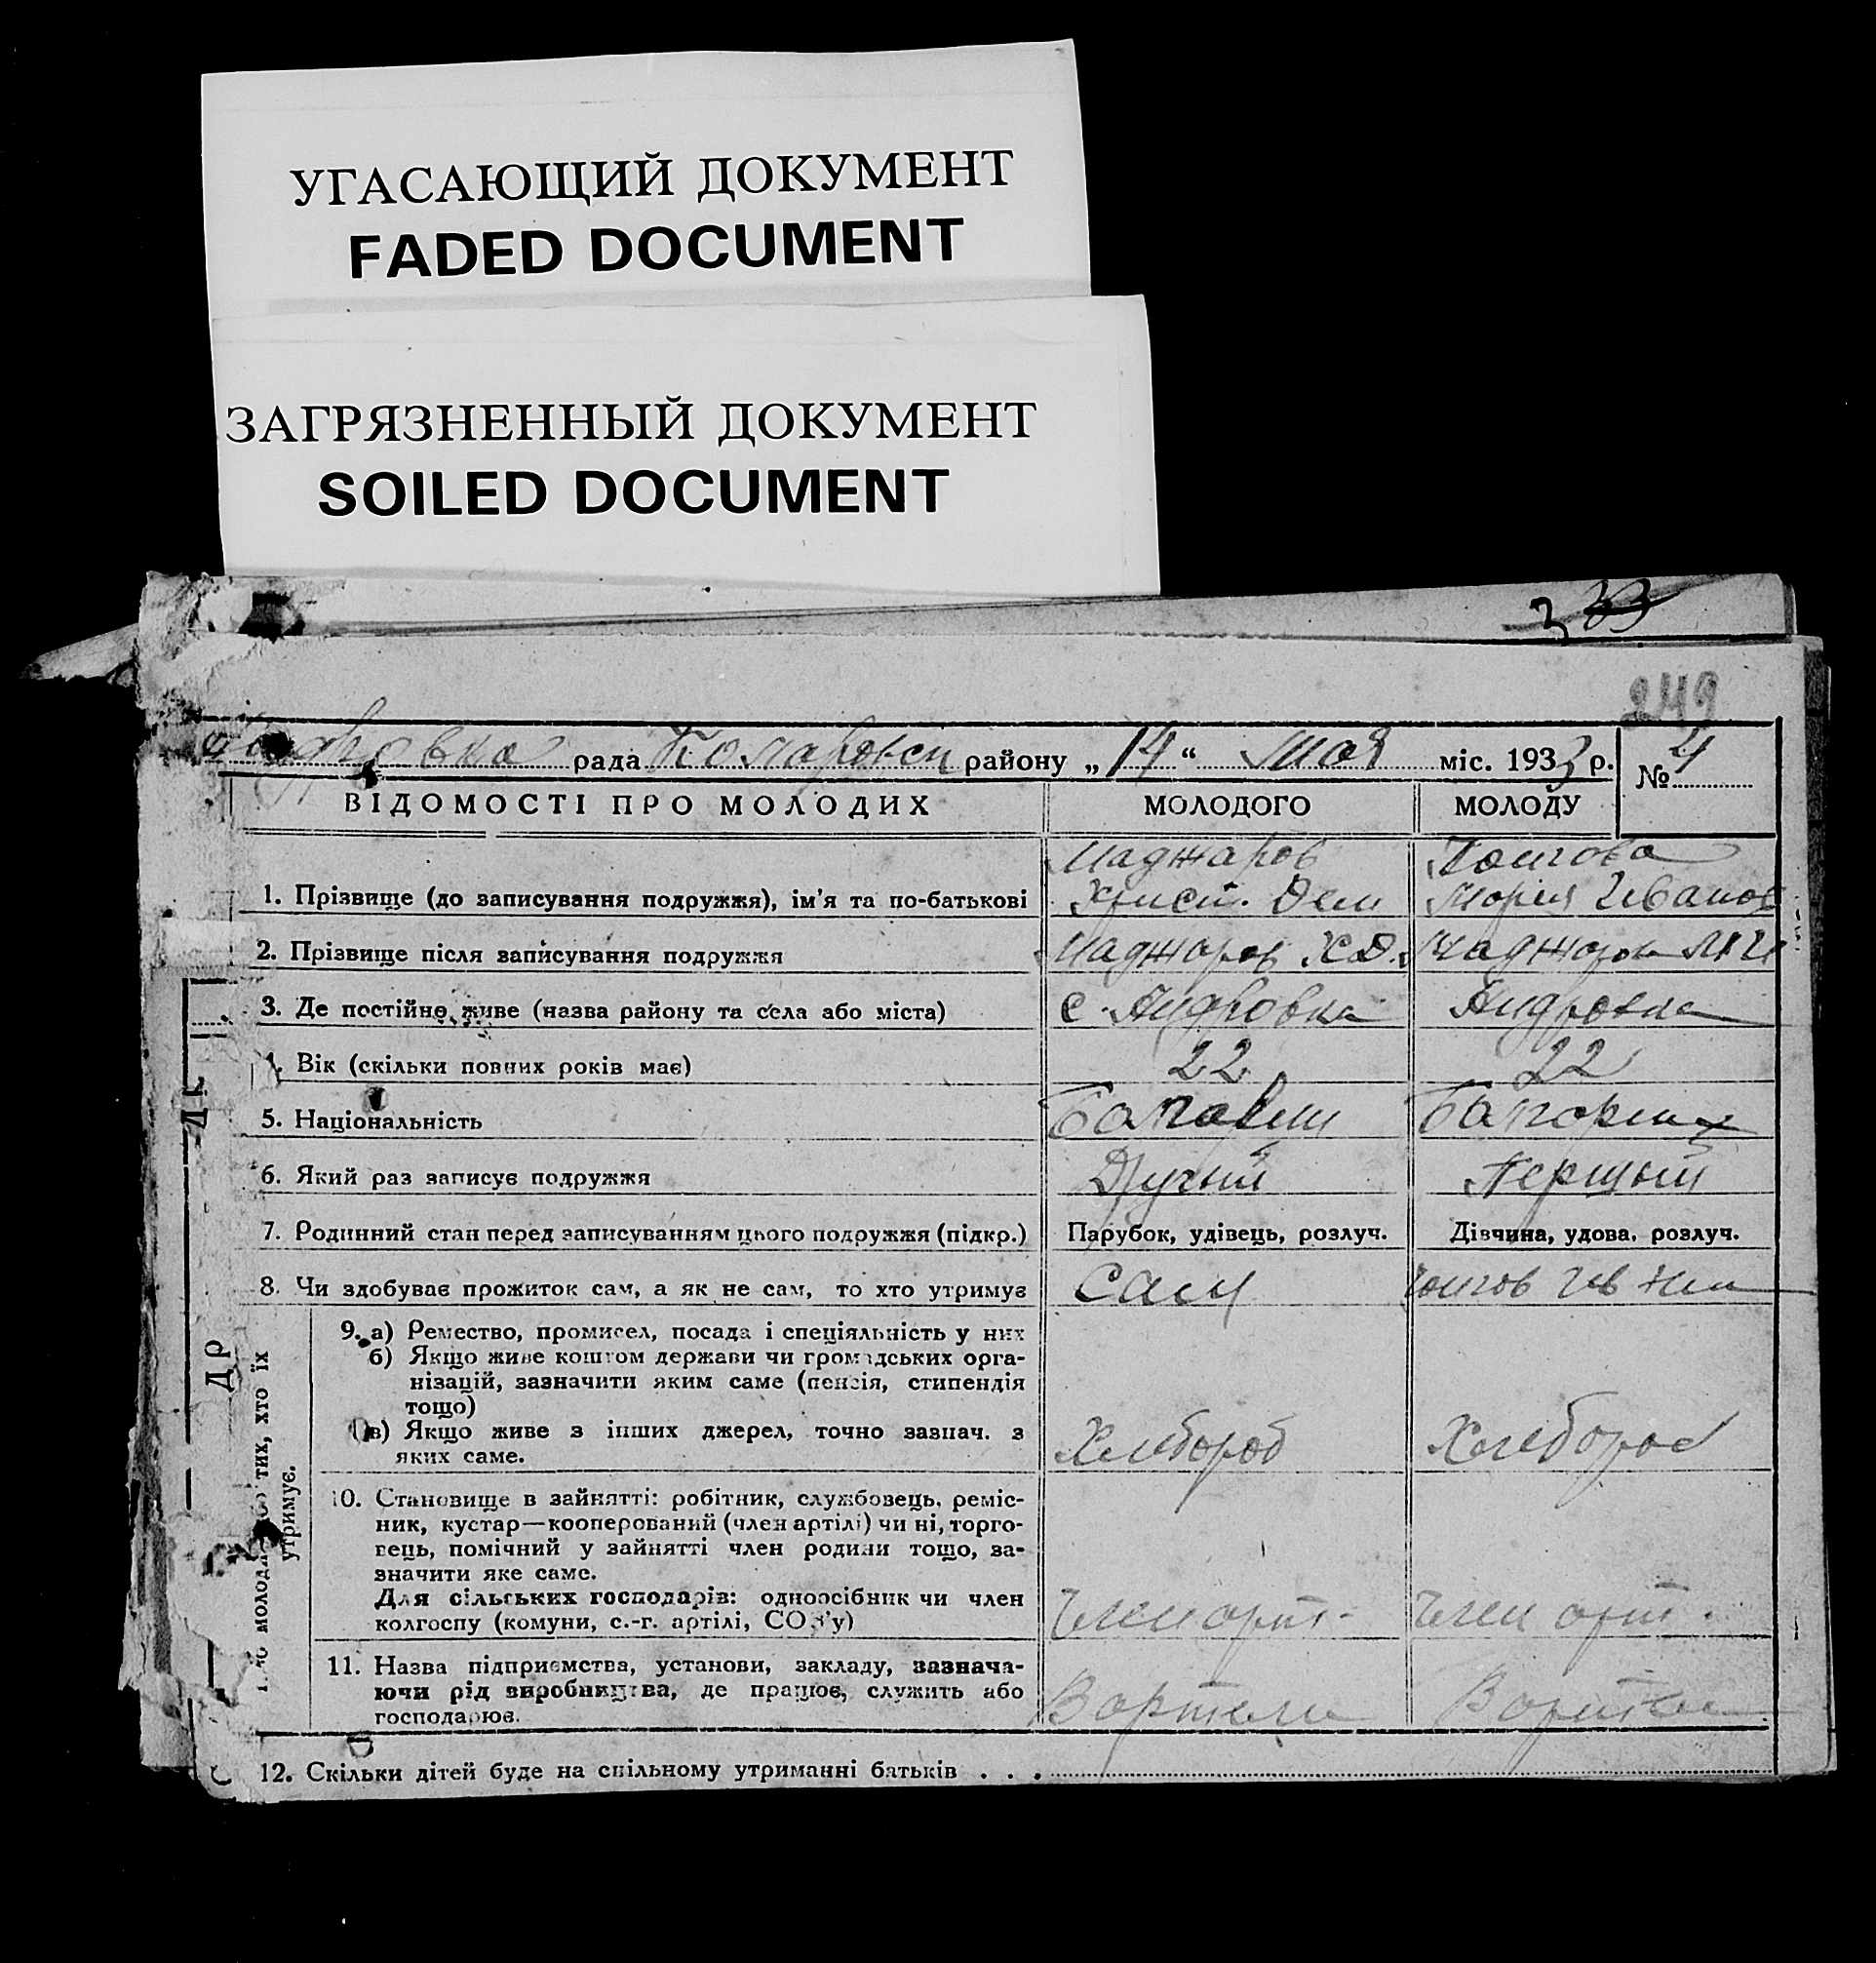 УГАСАЮЩИЙ ДОКУМЕНТ
FADED DOCUMENT
ЗАГРЯЗНЕННЫЙ ДОКУМЕНТ
SOILED DOCUMENT
3 33
249
рада Комаровск району „14“ мая міс. 1933 р.
№ 4
ВІДОМОСТІ ПРО МОЛОДИХ МОЛОДОГО МОЛОДУ
Маджаров
1. Прізвище (до записування подружжя), ім'я та по-батькові Христ. Дем Мария Иванов
2. Прізвище після записування подружжя Маджаров Х Д. Маджарова М И
3. Де постійно живе (назва району та села або міста) с. Андровка Андровка
4. Вік (скільки повних років має) 22 22
5. Національність
6. Який раз записує подружжя Другий Перщый
7. Родинний стан перед записуванням цього подружжя (підкр.) Парубок, удівець, розлуч. Дівчина, удова, розлуч.
8. Чи здобуває прожиток сам, а як не сам, то хто утримує Сам
тих, хто їх
утримує.
9. а) Ремество, промисел, посада і спеціяльність у них
б) Якщо живе коштом держави чи громадських орга-
нізацій, зазначити яким саме (пенсія, стипендія
тощо)
в) Якщо живе з інших джерел, точно зазнач. з
яких саме. Хлебороб Хлебороб
10. Становище в зайнятті: робітник, службовець, реміс-
ник, кустар—кооперований (член артілі) чи ні, торго-
вець, помічний у зайнятті член родини тощо, за-
значити яке саме.
Для сільських господарів: одноосібник чи член
колгоспу (комуни, с.-г. артілі, СОЗ'у) Член арт. Член арт.
11. Назва підприємства, установи, закладу, зазнача-
ючи рід виробництва, де працює, служить або
господарює. Вартели Вартели
12. Скільки дітей буде на спільному утриманні батьків . . .